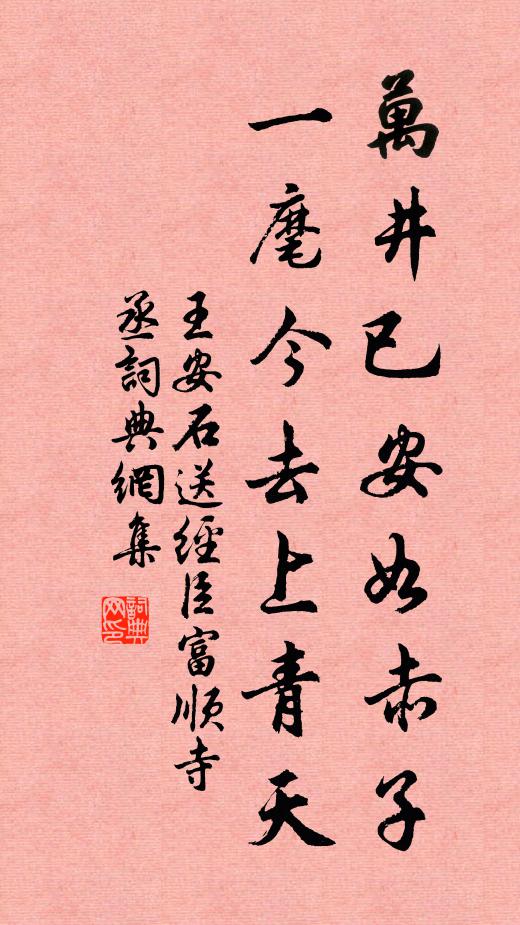 萬井已安如赤子
一麾今去上青天
王安石送經臣富順寺
丞詞典網集
詞典
网印